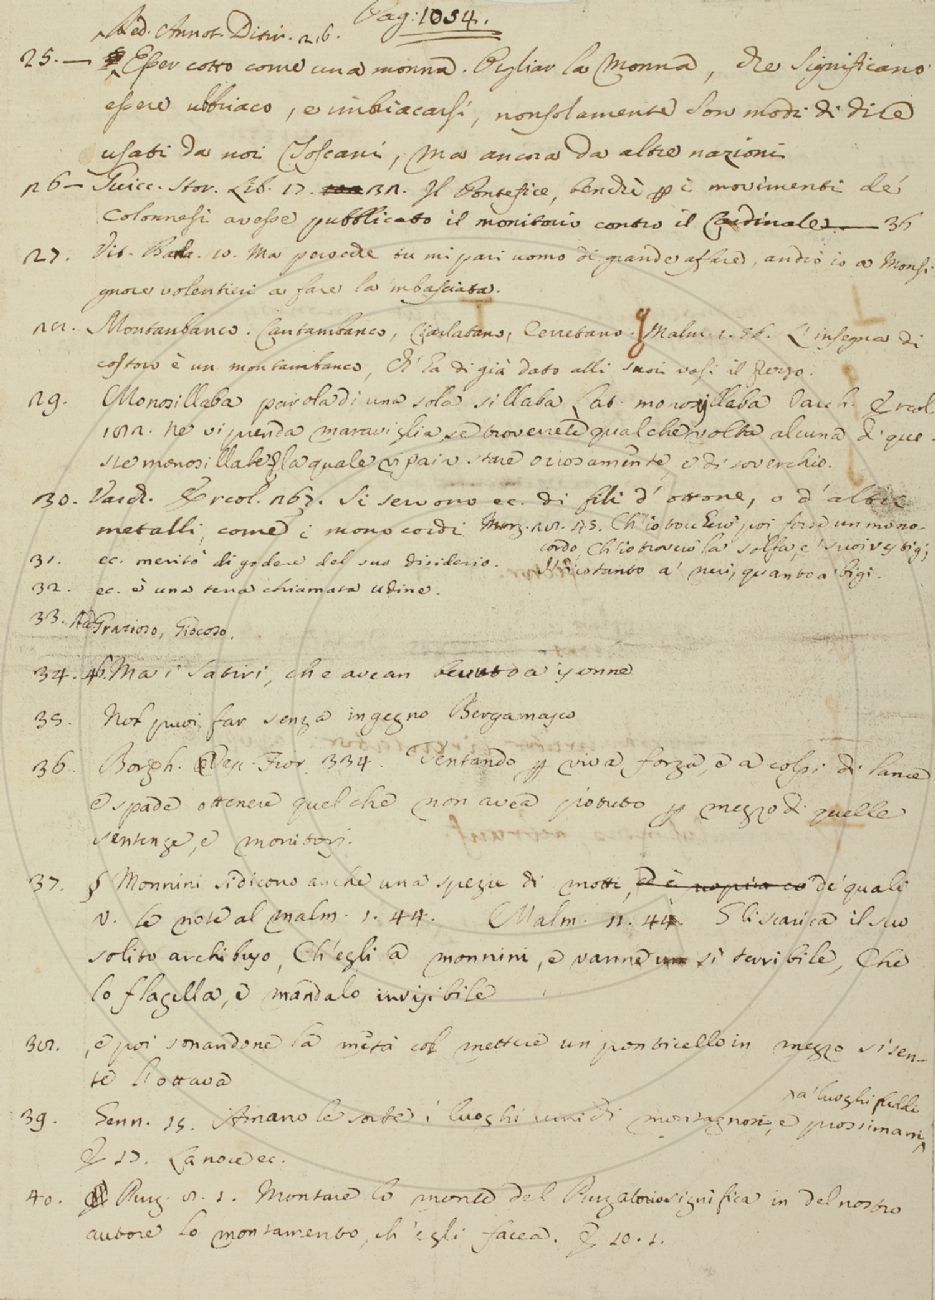 Pag: 1054.
Red. Annot. Ditir. 26.
25. — Esser cotto come una monna. Pigliar la Monna, che significano
essere ubbriaco, e imbriacarsi, nonsolamente son modi di dire
usati da noi Toscani, ma ancora da altre nazioni
26 — Guicc. Stor. Lib. 17. 32. Il Pontefice, benchè p i movimenti de'
Colonnesi avesse pubblicato il monitorio contro il Cardinale. — 36
27. Vit. Barl. 10. Ma perocchè tu mi pari uomo di grande affare, andrò io a Monsi
gnore volentieri a fare la 'mbasciata.
28. Montanbanco. Cantambanco, Ciarlatano, Cerretano. Malm. 2. 56. L'insegna di
costoro è un montambanco, Ch'ha di già dato alli suoi vasi il
29. Monosillaba parola di una sola sillaba Lat. monosyllaba Varch. Ercol.
182. Ne vi prenda maraviglia se troverrete qualche volta alcuna di que-
ste monosillabe, la quale vi paia stare oziosamente e di soverchio.
30. Varch. Ercol. 267. Si servono ec. di fili d'ottone, o d'altri
metalli, come i monocordi Morg. 28. Ch'io troverrò poi forse un mono-
cordo, Ch'io troverrò la solfa, e' suoi vestigj,
31. ec. meritò di godere del suo disiderio.
tanto a' neri, quanto a' bigi.
32. ec. è una terra chiamata Udine.
33. Grazioso, Giocoso.
34. 46. Ma i Satiri, che avean bevuto a isonne
35. Non puoi far senza ingegno Bergamasco
36. Borgh. Vesc. Fior. 334. Tentando p viva forza, e a colpi di lance
e spade ottenere quel che non avea potuto p mezzo di quelle
sentenze, e monitorj.
37. § Monnini si dicono anche una spezie di motti, de' quali
v. le note al Malm. 1. 44. Malm. 11. 44. Gli scarica il suo
solito archibuso, Ch'egli ha monnini, e vanne si terribile, Che
lo flagella, e mandalo invisibile
38. , e poi sonandone la metà col mettere un ponticello in mezzo si sen-
te l'ottava
39. Genn. 15. Amano le sorbe i luoghi umidi montagnosi, e prossimani
a' luoghi freddi
E 17. La noce ec.
40. Purg. 8. 1. Montare lo monte del Purgatorio significa in del nostro
autore lo montamento, ch'egli facea. E 10. 1.